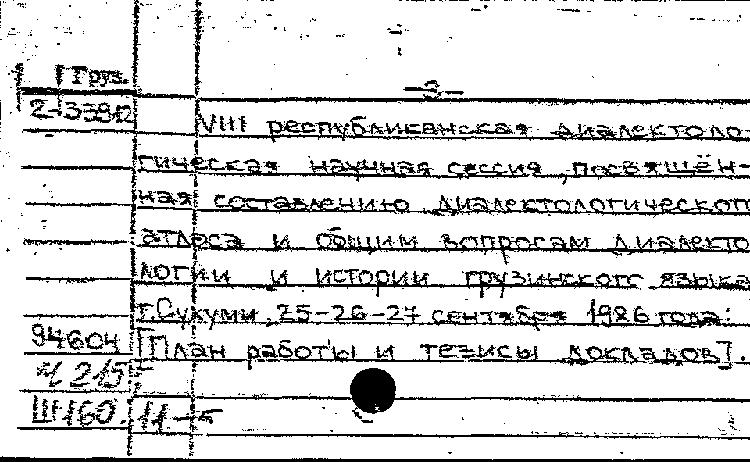 Груз.
-3-
2-33812
VIII республиканская диалектоло-
гическая научная сессия, посвящён-
ная составлению диалектологического
атласа и общим вопросам диалекто
логии и истории грузинского языка
г. Сухуми, 25-26-27 сентября 1986 года:
94604
[План работы и тезисы докладов].
Ч 215
Ш 160. 11-5